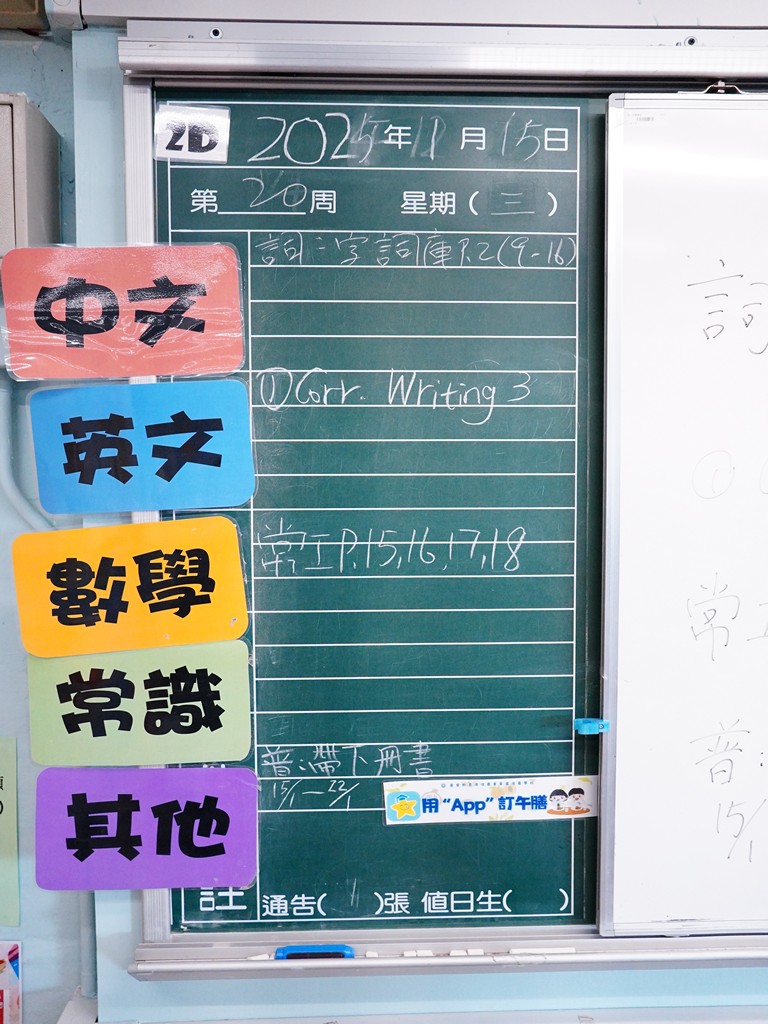 2D 2025年1月15日
第20周 星期(三)
中文
詞:字詞庫P.2(9-16)
英文
①Corr. Writing 3
數學
常工P.15,16,17,18
常識
普:帶下冊書
15/1—22/1
用“App”訂午膳
其他
註 通告(1)張 值日生( )
詞
①
常工
普:
15/1